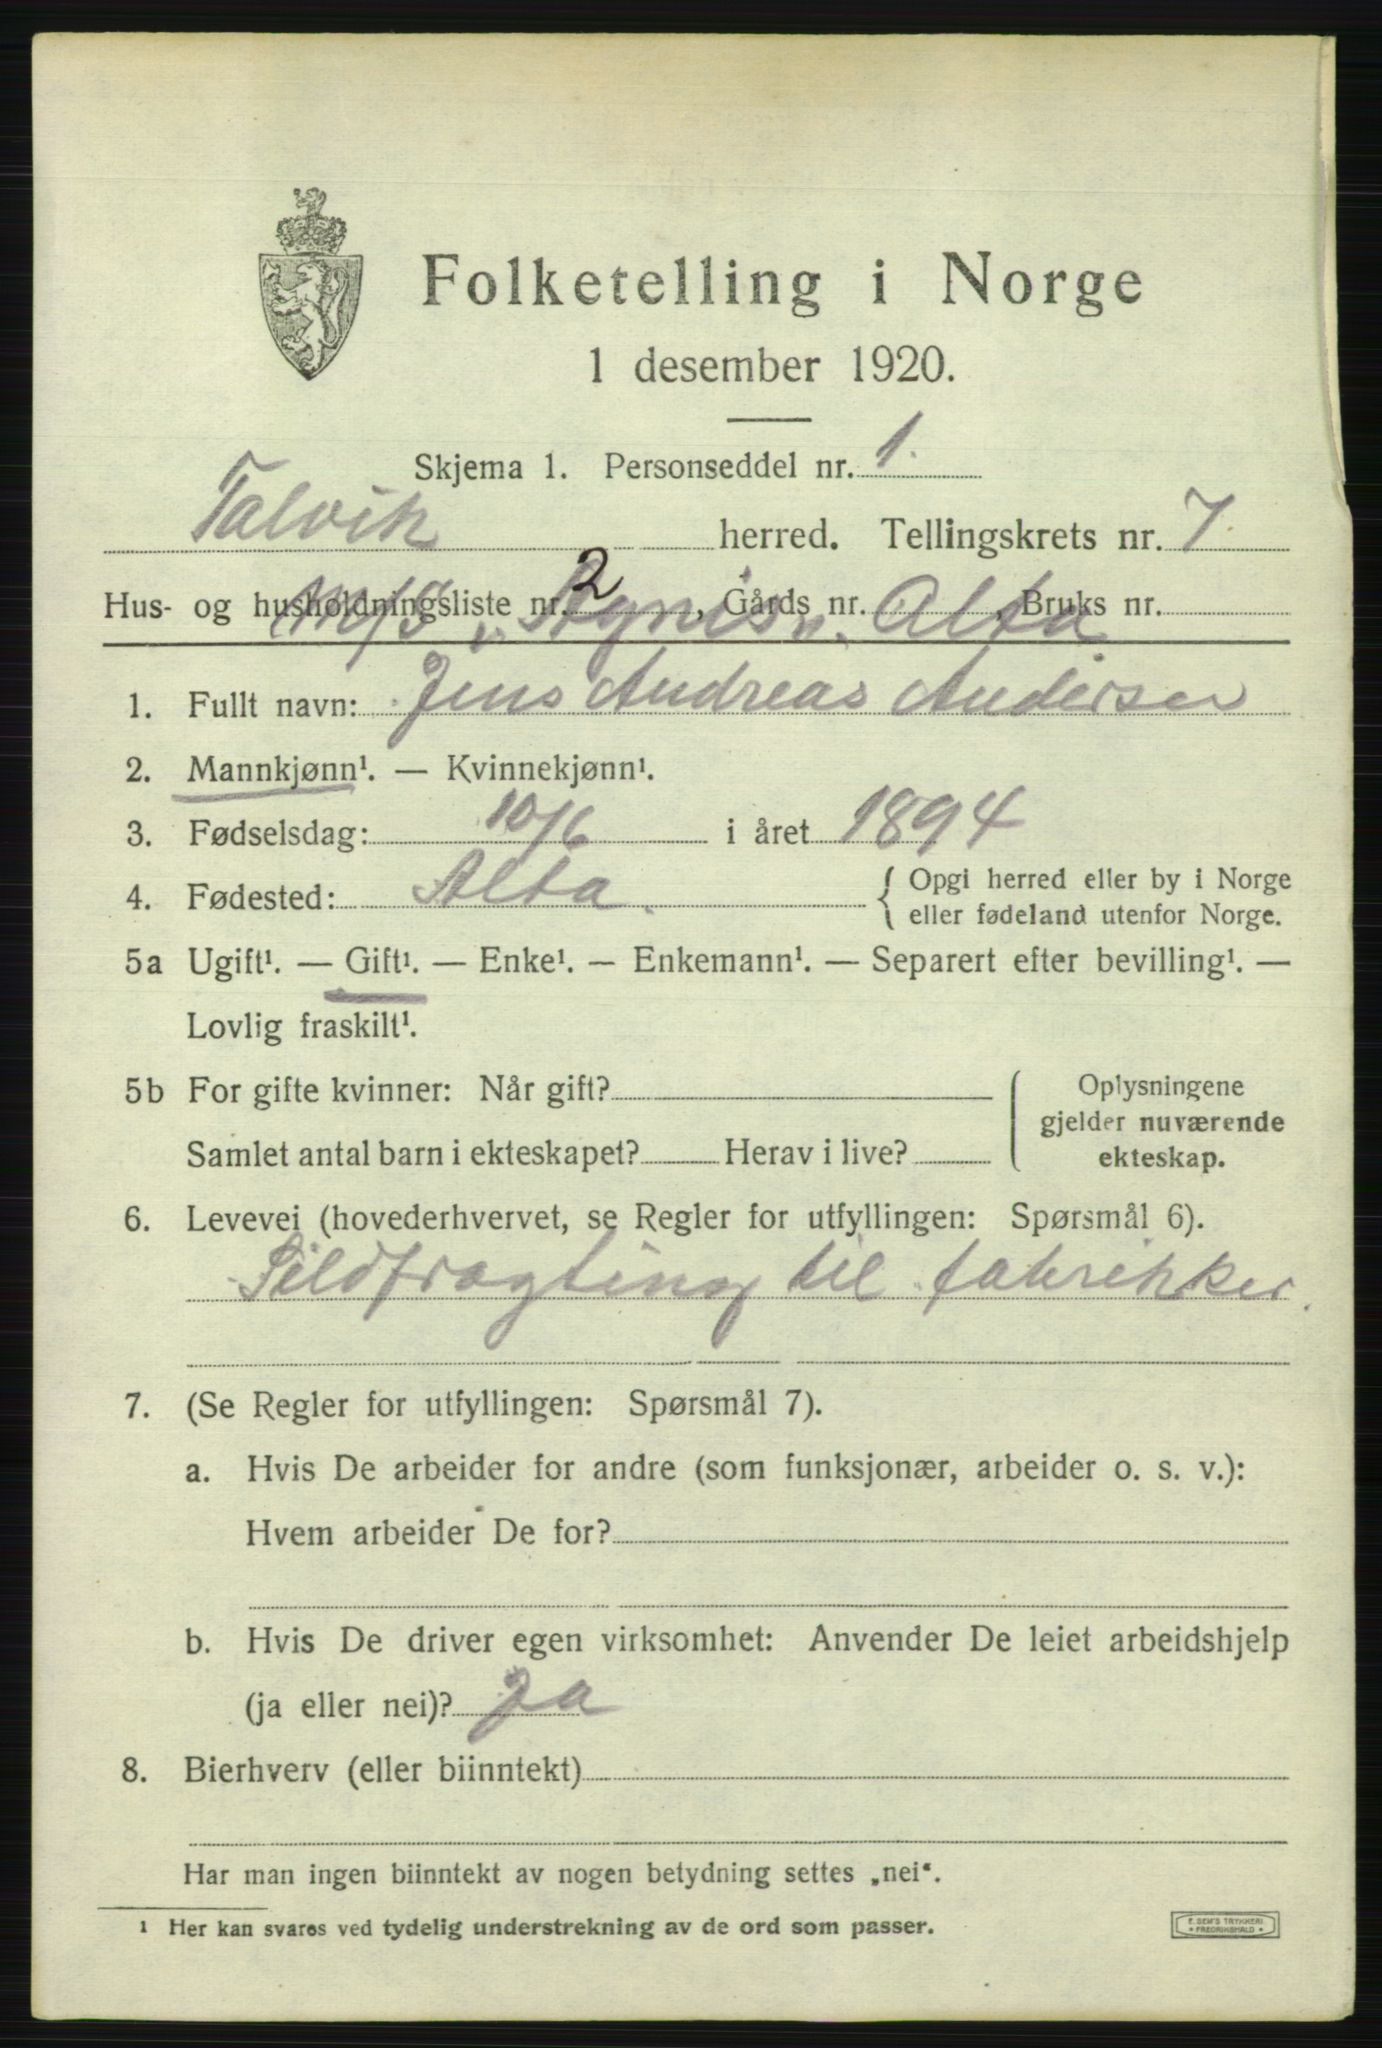 Folketelling i Norge
1 desember 1920.
Skjema 1. Personseddel nr. 1.
Talvik herred. Tellingskrets nr. 7.
Hus- og husholdningsliste nr. 2, Gårds nr. , Bruks nr.
M/S „Agnes“. Alta
1. Fullt navn: Jens Andreas Andersen
2. Mannkjønn¹. — Kvinnekjønn¹.
3. Fødselsdag: 10/6 i året 1894
4. Fødested: Alta. { Opgi herred eller by i Norge
eller fødeland utenfor Norge.
5a Ugift¹. — Gift¹. — Enke¹. — Enkemann¹. — Separert efter bevilling¹. —
Lovlig fraskilt¹.
5b For gifte kvinner: Når gift?
Samlet antal barn i ekteskapet? Herav i live?
Oplysningene
gjelder nuværende
ekteskap.
6. Levevei (hovederhvervet, se Regler for utfyllingen: Spørsmål 6).
Sildfragting til fabrikker.
7. (Se Regler for utfyllingen: Spørsmål 7).
a. Hvis De arbeider for andre (som funksjonær, arbeider o. s. v.):
Hvem arbeider De for?
b. Hvis De driver egen virksomhet: Anvender De leiet arbeidshjelp
(ja eller nei)? Ja
8. Bierhverv (eller biinntekt)
Har man ingen biinntekt av nogen betydning settes „nei“.
¹ Her kan svares ved tydelig understrekning av de ord som passer.
E. SEM'S TRYKKERI
FREDRIKSHALD